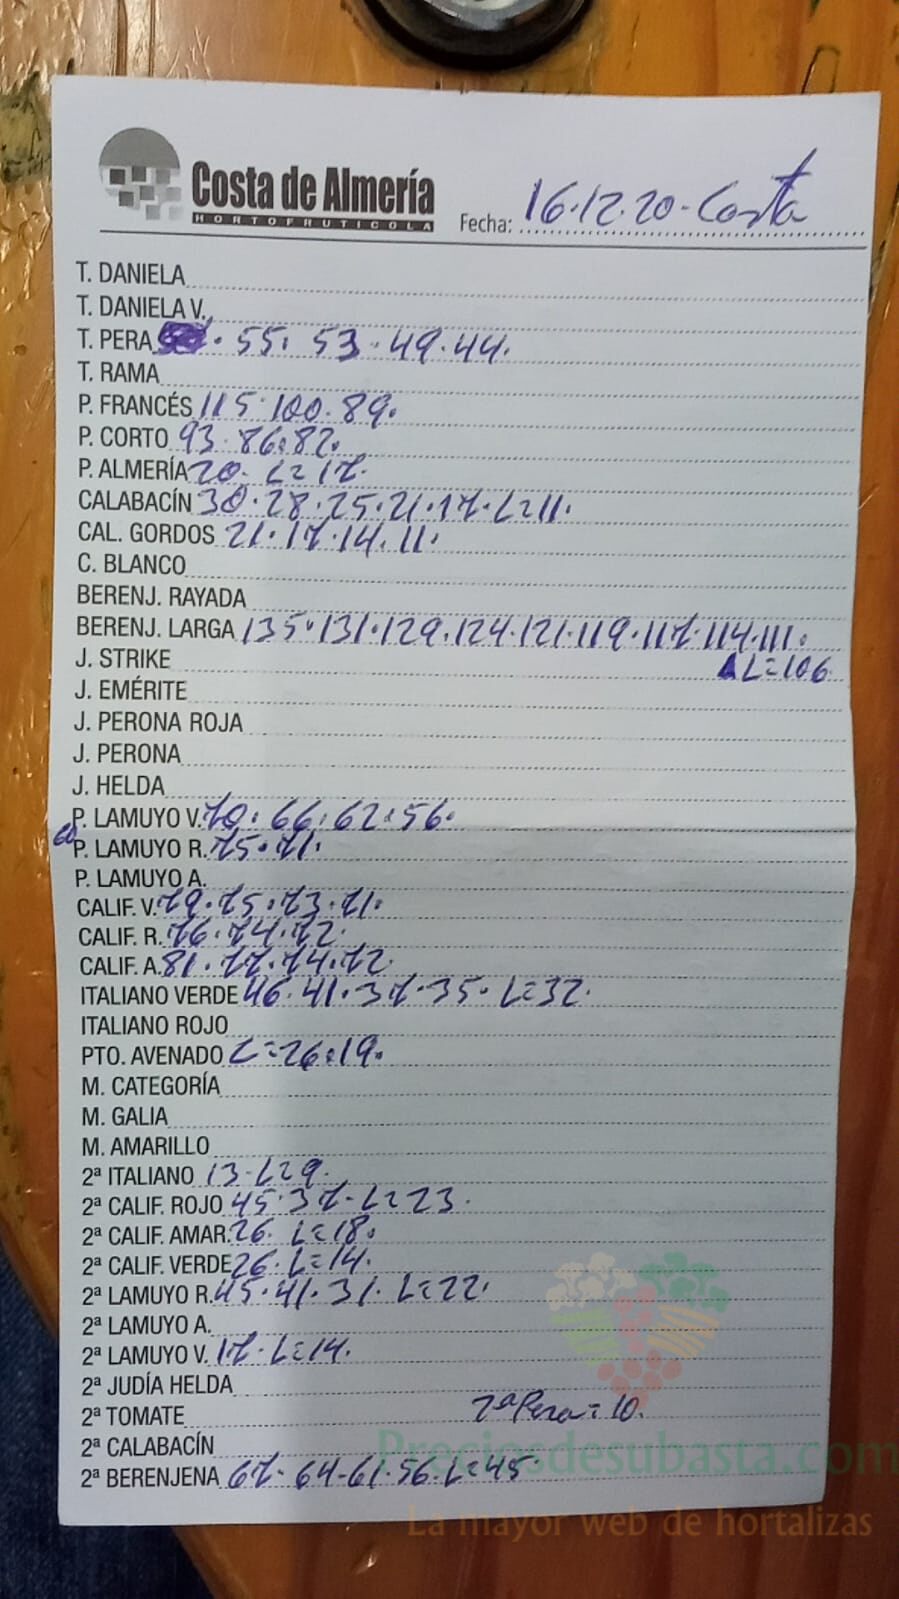 Costa de Almería
HORTOFRUTICOLA
Fecha: 16.12.20-Costa
T. DANIELA
T. DANIELA V.
T. PERA . 55. 53. 49. 44.
T. RAMA
P. FRANCÉS 115. 100. 89.
P. CORTO 93. 86. 82.
P. ALMERÍA 20. L=17.
CALABACÍN 30. 28. 25. 21. 17. L=11.
CAL. GORDOS 21. 17. 14. 11.
C. BLANCO
BERENJ. RAYADA
BERENJ. LARGA 135. 131. 129. 124. 121. 119. 117. 114. 111.
J. STRIKE L=106
J. EMÉRITE
J. PERONA ROJA
J. PERONA
J. HELDA
P. LAMUYO V. 70. 66. 62. 56.
P. LAMUYO R. 75. 71.
P. LAMUYO A.
CALIF. V. 79. 75. 73. 71.
CALIF. R. 76. 74. 72.
CALIF. A. 81. 77. 74. 72
ITALIANO VERDE 46. 41. 37. 35. L=32.
ITALIANO ROJO
PTO. AVENADO L=26. 19.
M. CATEGORÍA
M. GALIA
M. AMARILLO
2ª ITALIANO 13. L=9.
2ª CALIF. ROJO 45. 37. L=23.
2ª CALIF. AMAR. 26. L=18.
2ª CALIF. VERDE 26. L=14.
2ª LAMUYO R. 45. 41. 31. L=22.
2ª LAMUYO A.
2ª LAMUYO V. 17. L=14.
2ª JUDÍA HELDA
2ª TOMATE 2ª Pera=10.
2ª CALABACÍN
Preciosdesubasta.com
2ª BERENJENA 67. 64-61. 56. L=45.
La mayor web de hortalizas